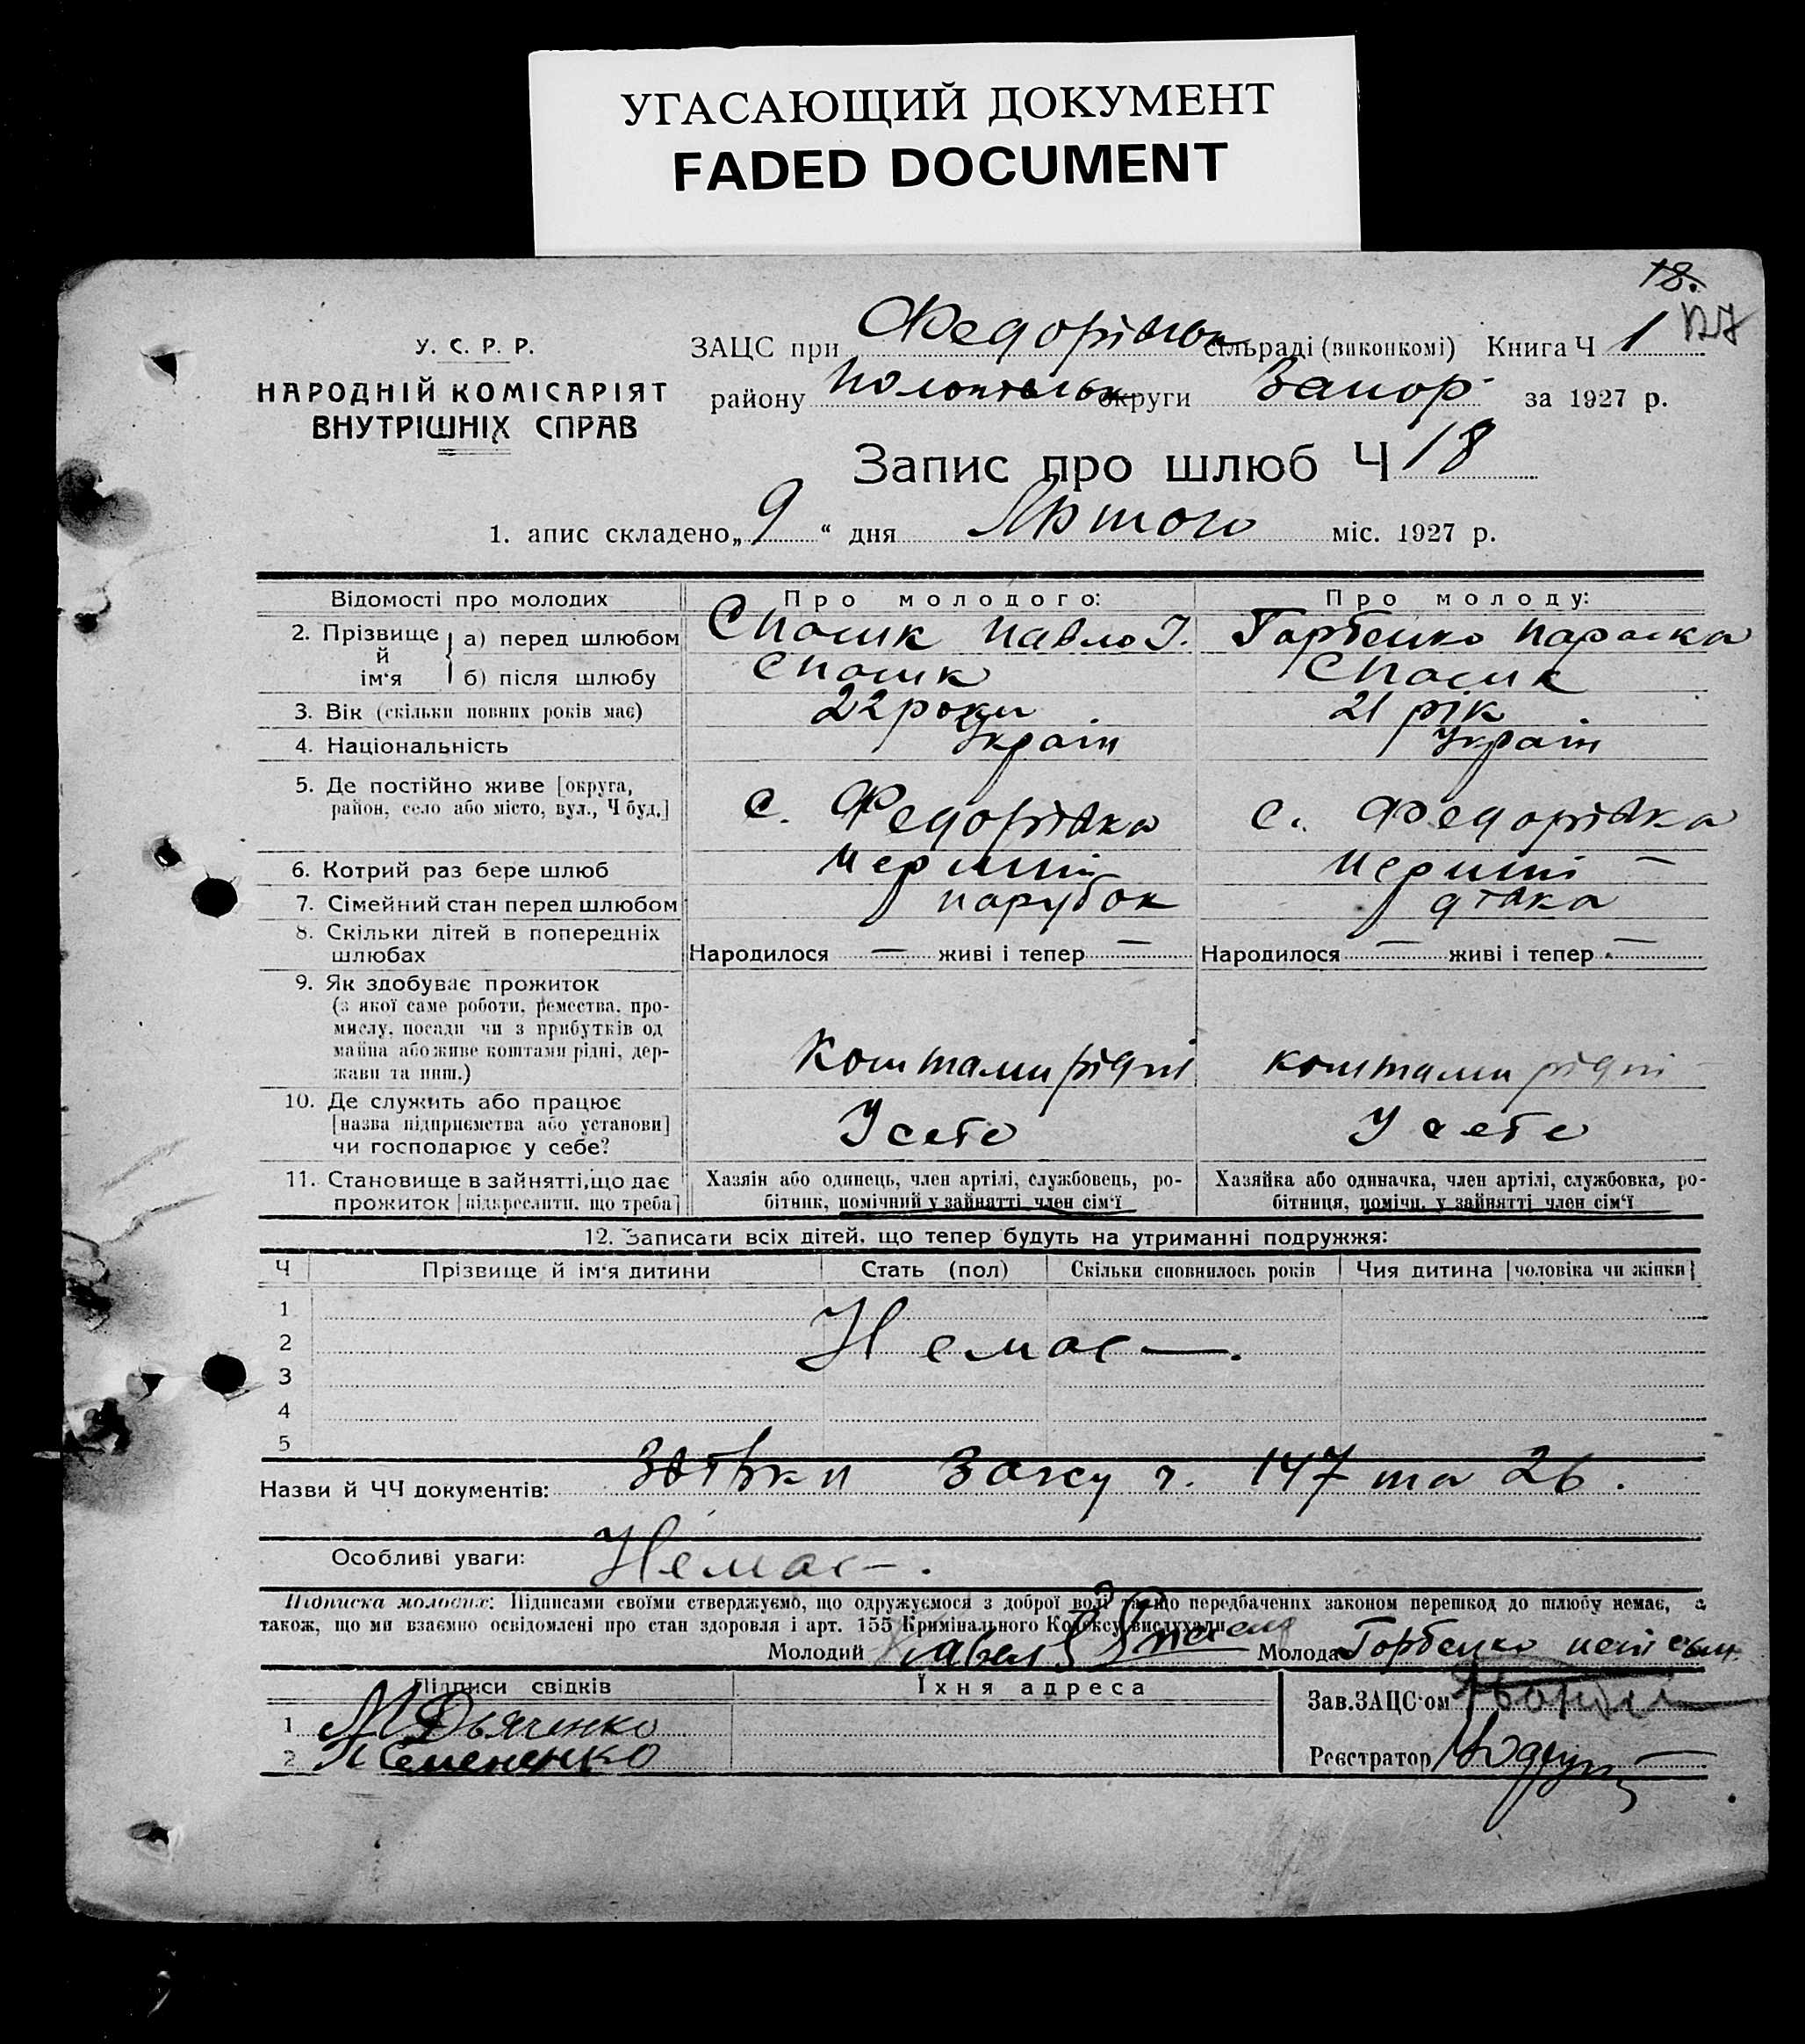 УГАСАЮЩИЙ ДОКУМЕНТ
FADED DOCUMENT
18.
У. С. Р. Р.
НАРОДНІЙ КОМІСАРІЯТ
ВНУТРІШНІХ СПРАВ
ЗАЦС при Федорівськ сільраді (виконкомі) Книга Ч 1
району округи Запор за 1927 р.
Запис про шлюб Ч 18
1. апис складено „ 9 “ дня Лютого міс. 1927 р.
Відомості про молодих Про молодого: Про молоду:
2. Прізвище й ім'я а) перед шлюбом Спасик Павло І. Горбенко Параска
б) після шлюбу Спасик Спасик
3. Вік (скільки повних років має) 22 роки 21 рік
4. Національність Україн Україн
5. Де постійно живе [округа, район, село або місто, вул., Ч буд.] с. Федорівка с. Федорівка
6. Котрий раз бере шлюб перший перший
7. Сімейний стан перед шлюбом парубок дівка
8. Скільки дітей в попередніх шлюбах Народилося — живі і тепер — Народилося — живі і тепер —
9. Як здобуває прожиток
(з якої саме роботи, ремества, про-
мислу, посади чи з прибутків од
майна або живе коштами рідні, дер-
жави та инш.) Коштами рідні коштами рідні
10. Де служить або працює
[назва підприємства або установи]
чи господарює у себе? У себе У себе
11. Становище в зайнятті, що дає прожиток [підкреслити, що треба]
Хазяін або одинець, член артілі, службовець, ро-
бітник, помічний у зайнятті член сім'ї
Хазяйка або одиначка, член артілі, службовка, ро-
бітниця, помічн. у зайнятті член сім'ї
12. Записати всіх дітей, що тепер будуть на утриманні подружжя:
Ч Прізвище й ім'я дитини Стать (пол) Скільки сповнилось років Чия дитина [чоловіка чи жінки]
1
2 Немає—.
3
4
5
Назви й ЧЧ документів: загсу ч. 147 та 26.
Особливі уваги: Немає—.
Підписка молодих: Підписами своїми стверджуємо, що одружуємося з доброї волі та що передбачених законом перешкод до шлюбу немає, а
також, що ми взаємно освідомлені про стан здоровля і арт. 155 Кримінального Кодексу вислухали
Молодий Молода Горбенко
Підписи свідків Їхня адреса
1 М Дьяченко
2 Семененко
Зав. ЗАЦС'ом
Реєстратор